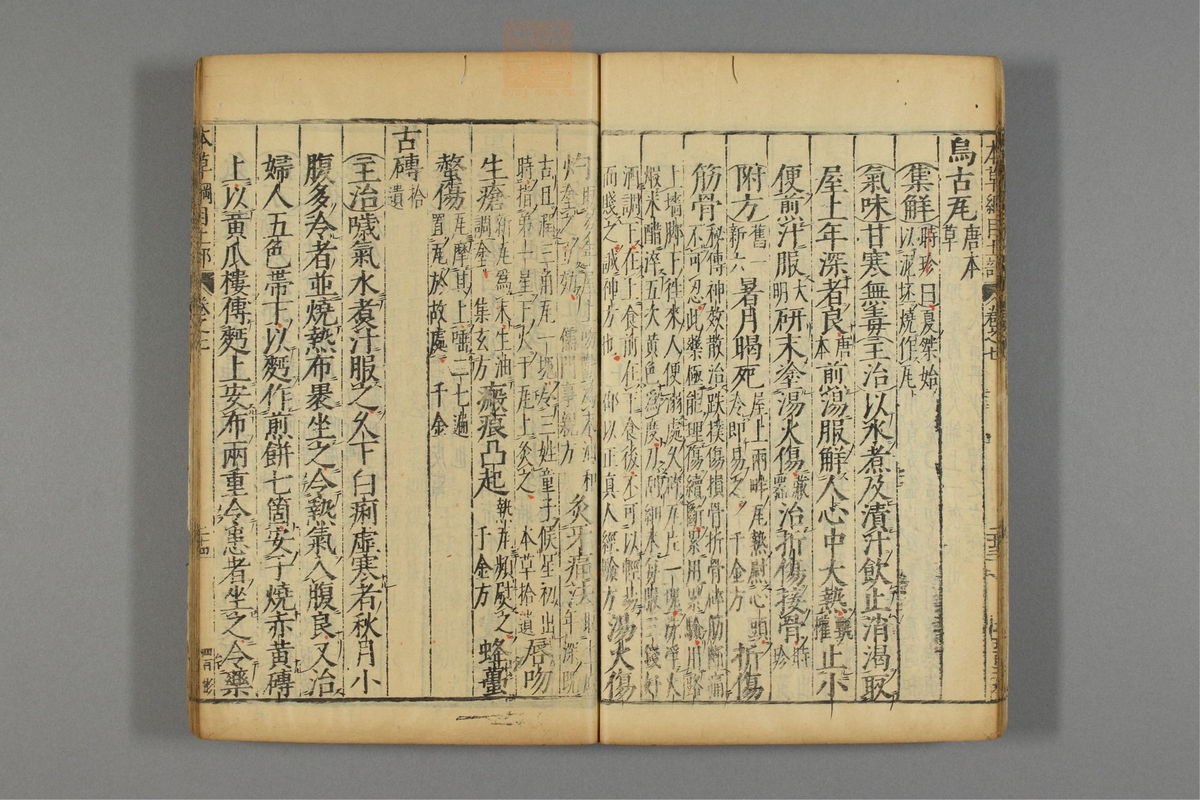 烏古瓦唐本草
集解時珍曰夏桀始以泥坯燒作瓦
氣味甘寒無毒主治以水煮及漬汁飲止消渴取
屋上年深者良唐本煎湯服解人心中大熱甄權止小
便煎汁服大明研末塗湯火傷藏器治折傷接骨時珍
附方舊一新六暑月暍死屋上兩畔瓦熱熨心頭冷即易之千金方折傷
筋骨秘傳神效散治跌撲傷損骨折骨碎筋斷痛不可忍此藥極能理傷續斷累用累驗用路
上墻脚下往來人便溺處久碎瓦片一塊洗淨火煅米醋淬五次黃色為度刀刮細末每服三錢好
酒調下在上食前在下食後不可以輕易而賤之誠神方也邵以正真人經驗方湯火傷
儒門事親方灸牙痛
時指第一星下火于瓦上灸之本草拾遺唇吻
生瘡新瓦為末生油調塗集玄方瘢痕凸起熱瓦頻熨之千金方蜂蠆
螫傷瓦摩其上唾二七遍置瓦於故處千金
古磚拾遺
主治噦氣水煮汁服之久下白痢虛寒者秋月小
腹多冷者並燒熱布裹坐之令熱氣入腹良又治
婦人五色帶下以麪作煎餅七箇安于燒赤黃磚
上以黃瓜樓傅麪上安布兩重令患者坐之令藥
本草綱目土部
卷之七